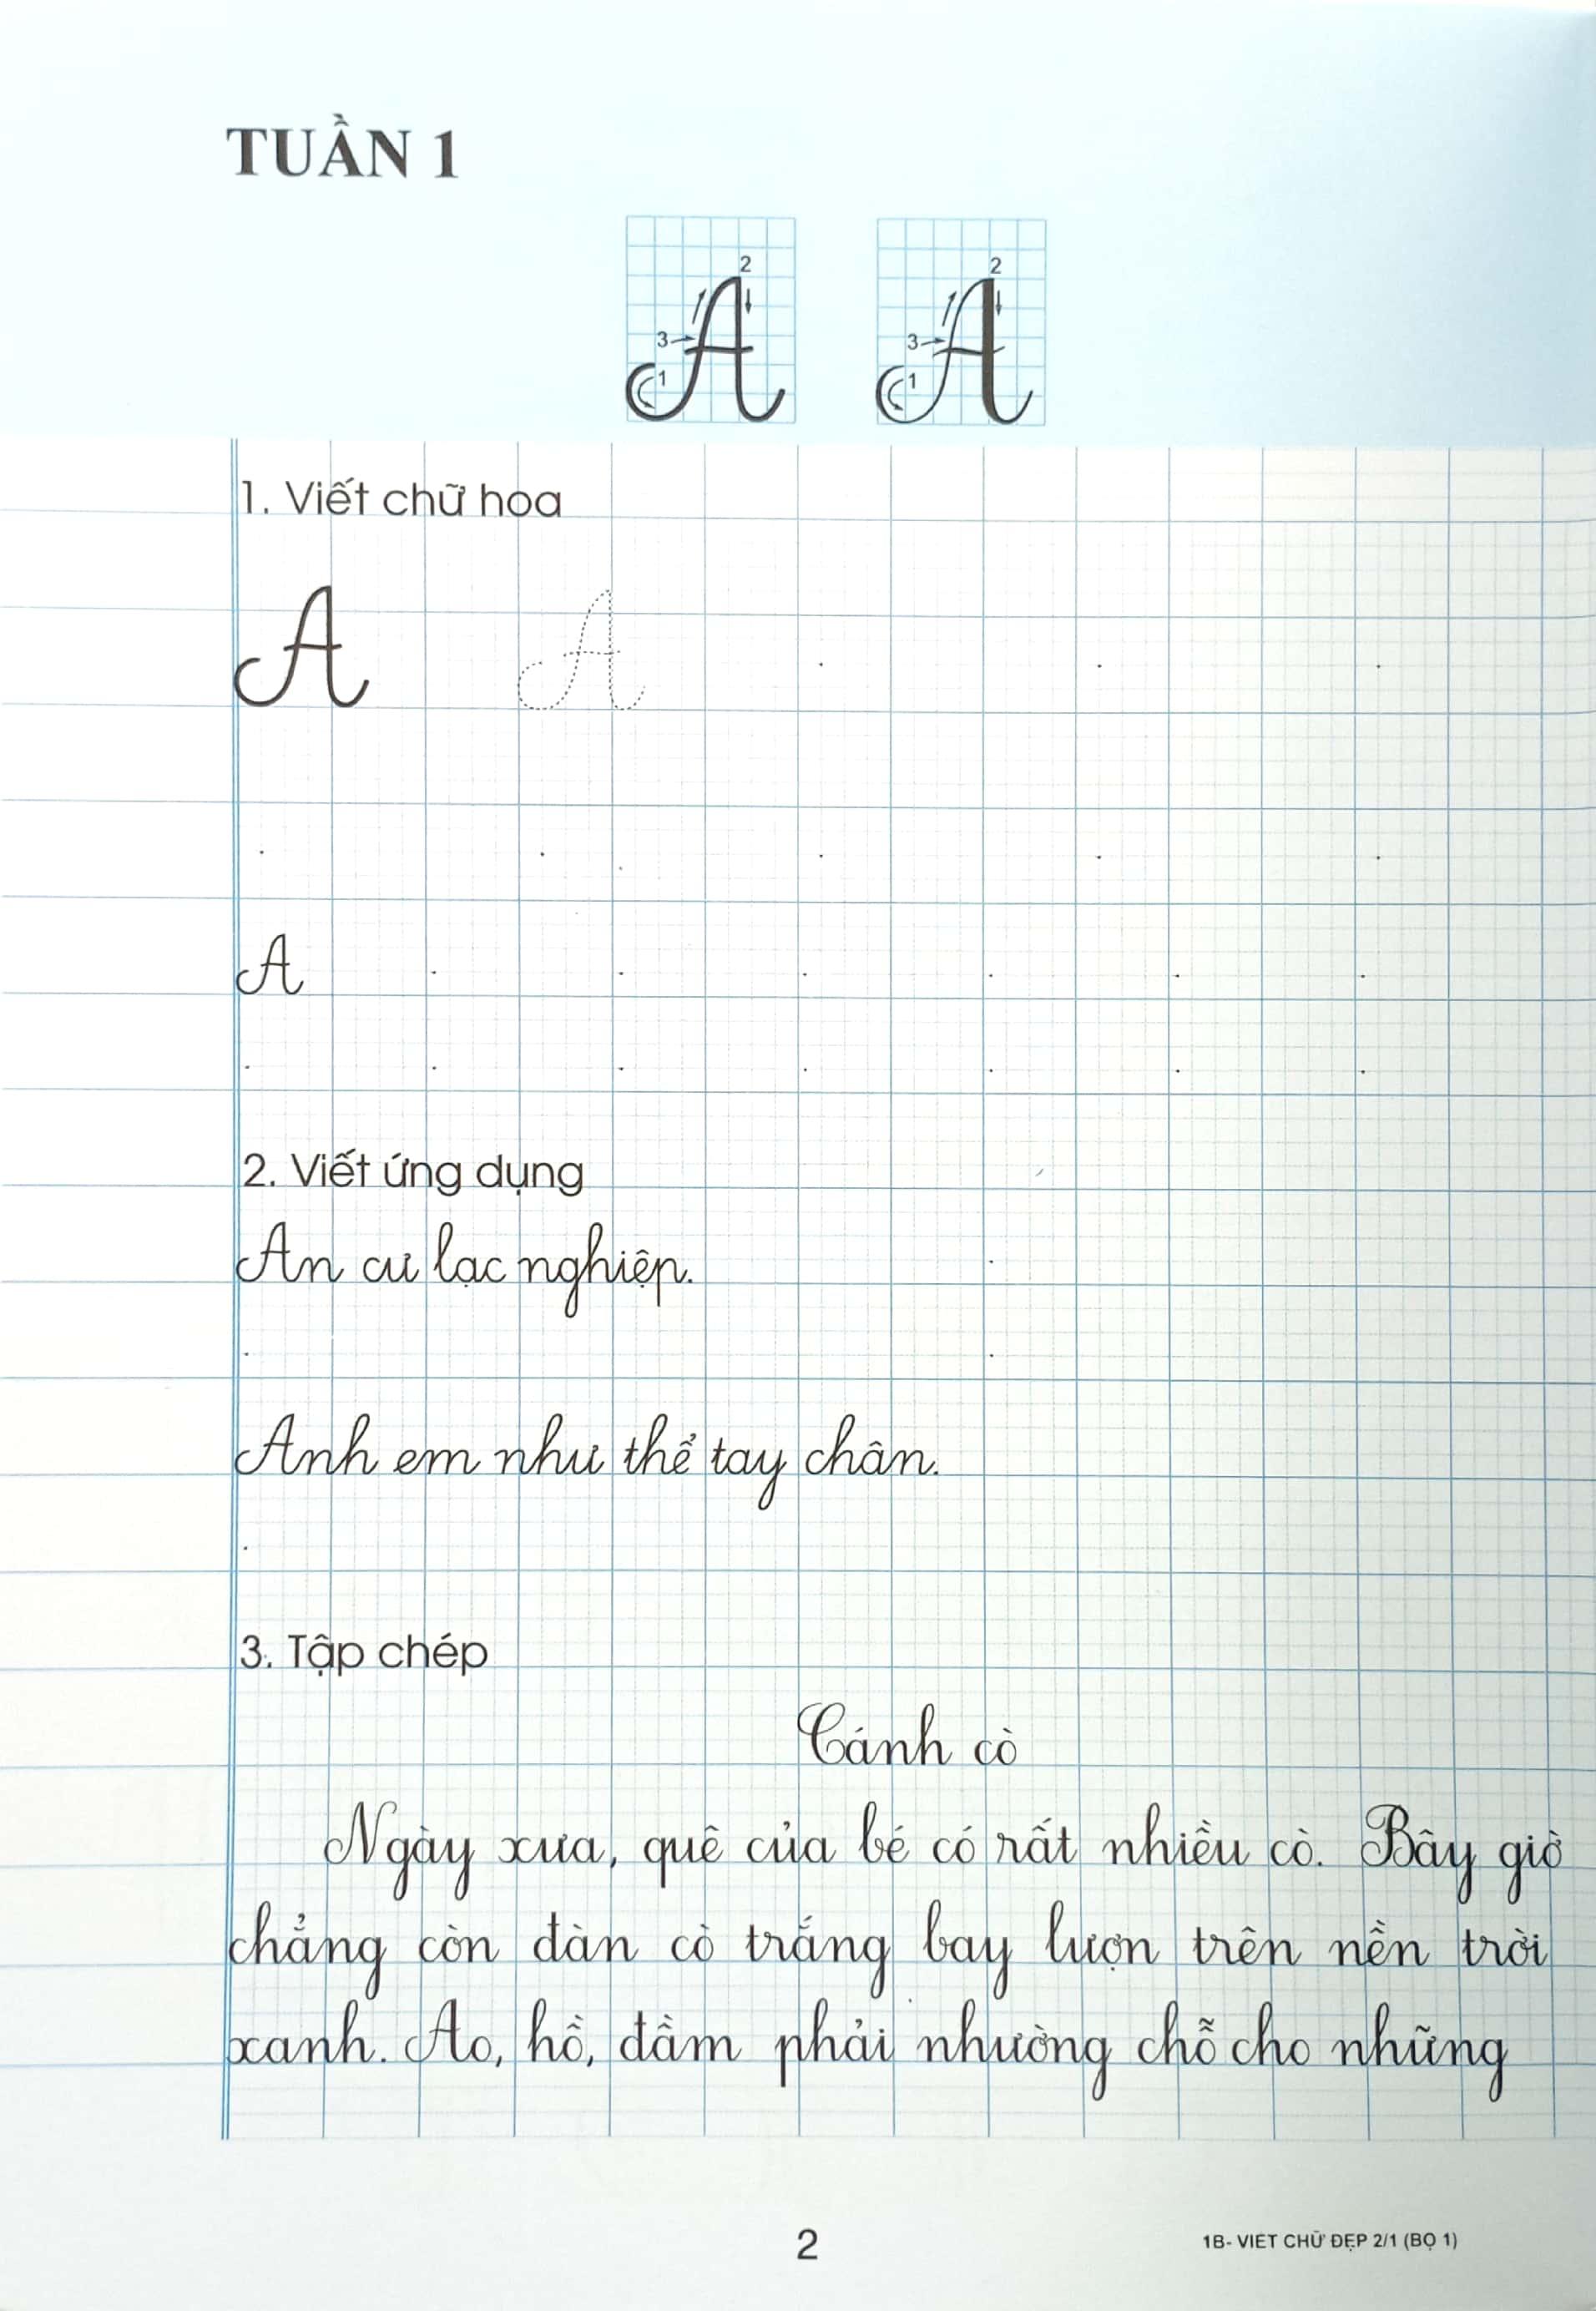 TUẦN 1
2 2
3 3
1 1
1. Viết chữ hoa
A A
A
2. Viết ứng dụng
An cư lạc nghiệp.
Anh em như thể tay chân.
3. Tập chép
Cánh cò
Ngày xưa, quê của bé có rất nhiều cò. Bây giờ
chẳng còn đàn cò trắng bay lượn trên nền trời
xanh. Ao, hồ, đầm phải nhường chỗ cho những
2
1B- VIẾT CHỮ ĐẸP 2/1 (BỘ 1)